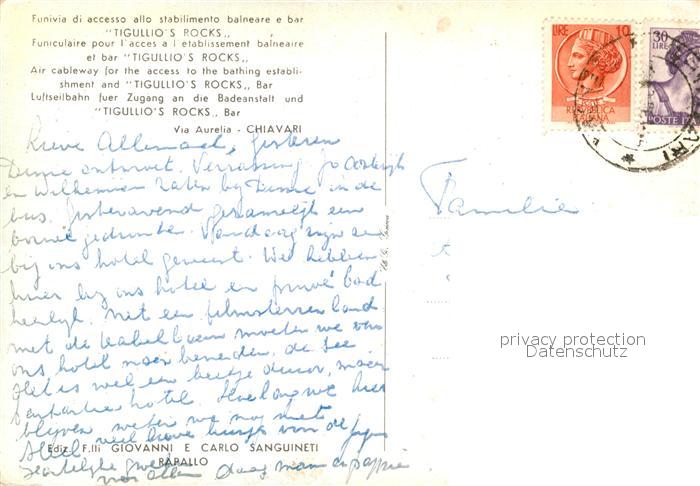 Funivia di accesso allo stabilimento balneare e bar
"TIGULLIO'S ROCKS„
Funiculaire pour l'acces a l'etablissement balneaire
et bar "TIGULLIO'S ROCKS„
Air cableway for the access to the bathing establi-
shment and "TIGULLIO'S ROCKS„ Bar
Luftseilbahn fuer Zugang an die Badeanstalt und
"TIGULLIO'S ROCKS„ Bar
Via Aurelia - CHIAVARI
LIRE 10
REPVBBLICA
ITALIANA
30
LIRE
POSTE ITA
Lieve Allemaal, gisteren
ontmoet. Verrassing Jo
en Wilhelmien zaten bij in de
bus. gezamelijk een
borrel gedronken. Vandaag zijn ze
bij ons hotel geweest. We hebben
hier bij ons hotel een privé bad
heerlijk. Net een filmsterren land
met de kabelbaan moeten we van
ons hotel naar beneden, de zee
het is wel een beetje duur, maar
hotel. Hoelang we hier
blijven weten we nog niet
veel lieve kusjes voor de jongens
hartelijke groeten
voor allen daag mam en pappie
Familie
privacy protection
Datenschutz
Ediz. F.lli GIOVANNI E CARLO SANGUINETI
RAPALLO